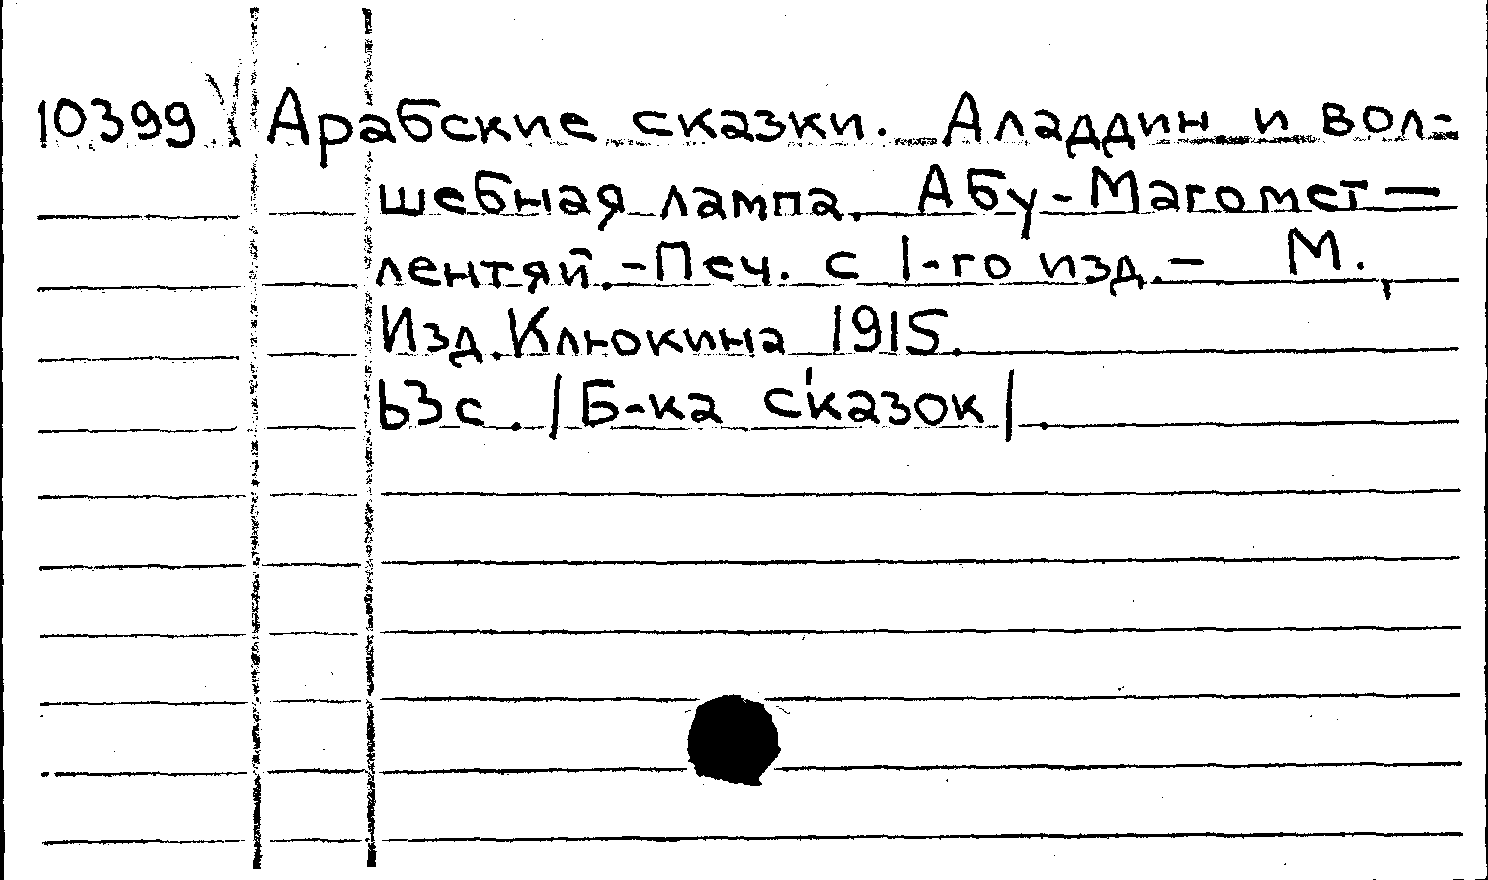 10399 Арабские сказки. Аладдин и вол-
шебная лампа. Абу-Магомет —
лентяй. - Печ. с 1-го изд. - М.,
Изд. Клюкина 1915.
63с. /Б-ка сказок/.